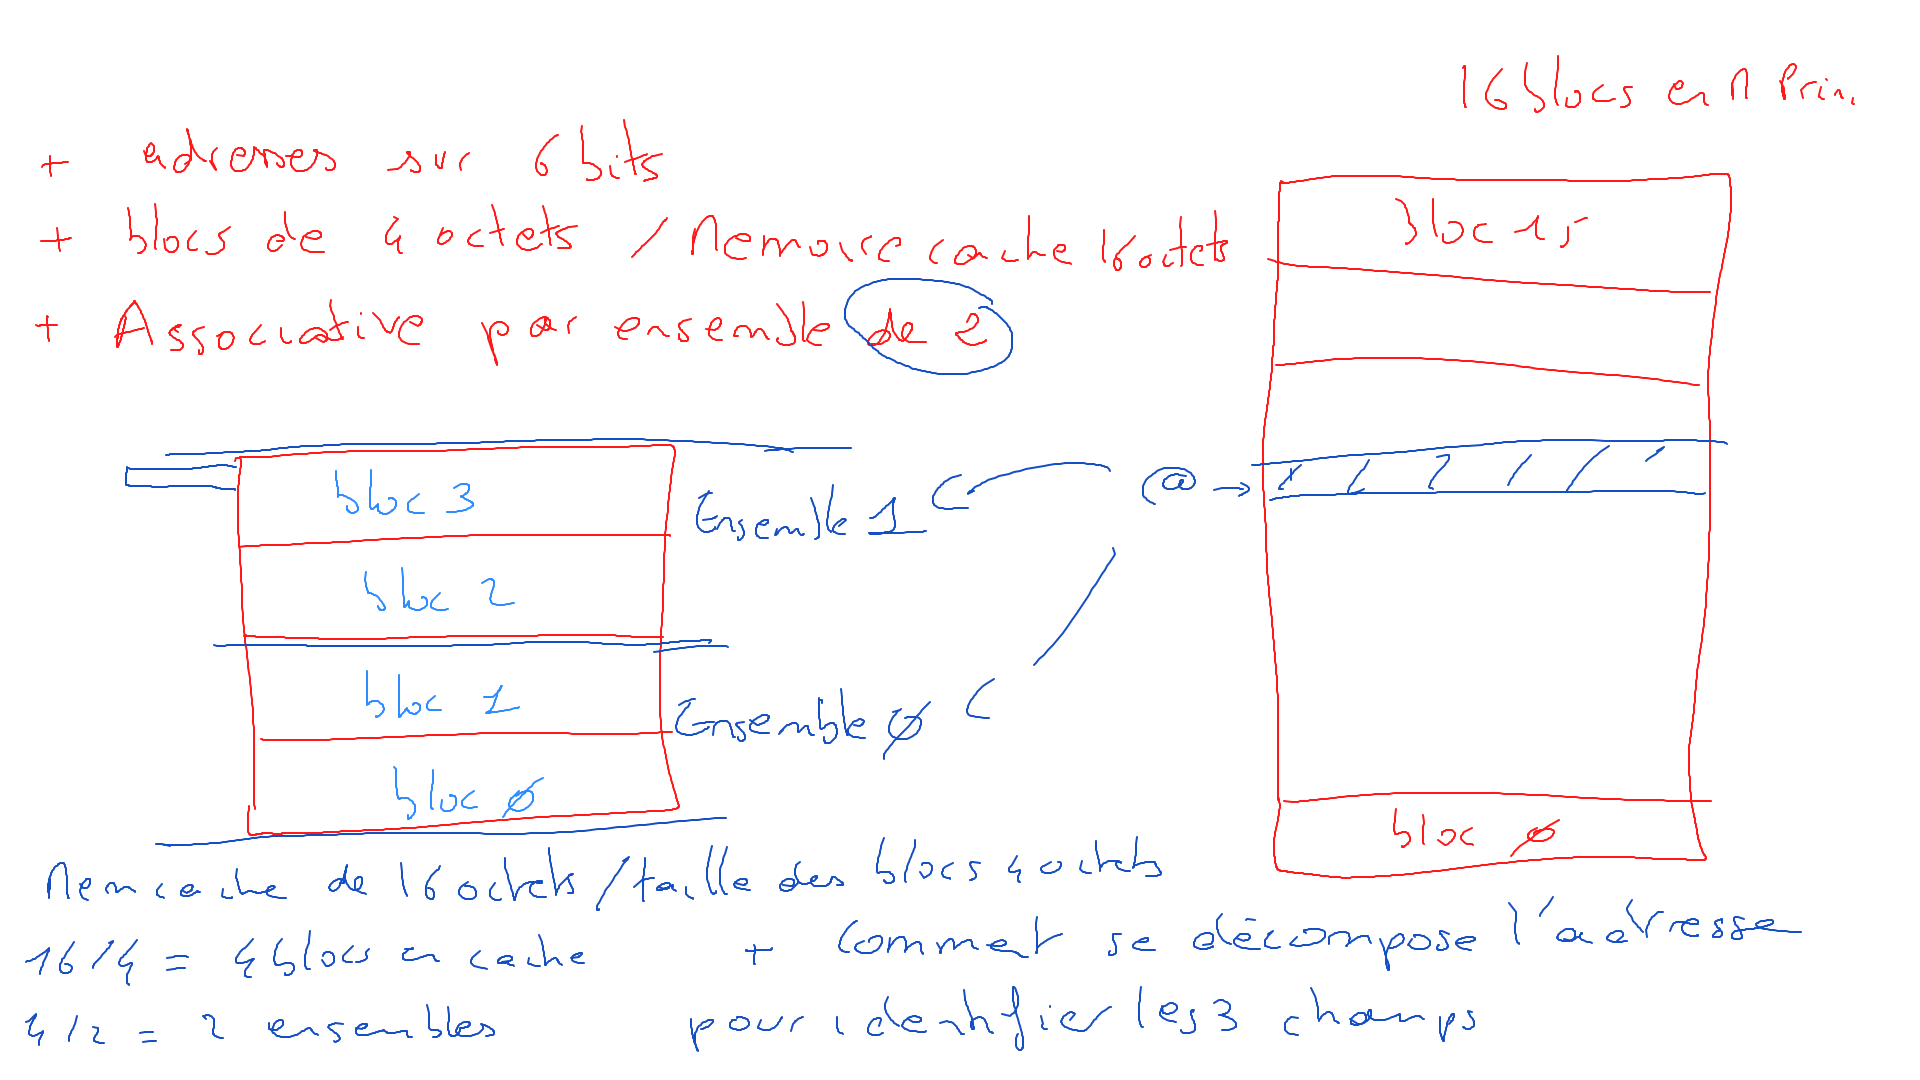 16 blocs en M Prin.
+ adresses sur 6 bits
+ blocs de 4 octets / Memoire cache 16 octets
+ Associative par ensemble de 2
bloc 15
bloc 3
Ensemble 1
@ →
bloc 2
bloc 1
Ensemble ø
bloc ø
bloc ø
Mem cache de 16 octets / taille des blocs 4 octets
16/4 = 4 blocs en cache
+ Comment se décompose l'adresse
4/2 = 2 ensembles
pour identifier les 3 champs